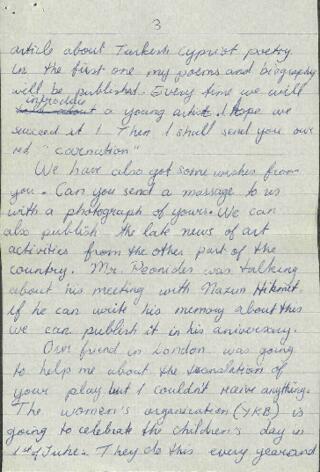 3
article about Turkish Cypriot poetry
in the first one my poems and biography
will be published. Every time we will
introduce
a young artist. I hope we
succeed it! Then I shall send you our
red "carnation"
We have also got some wishes from
you. Can you send a message to us
with a photograph of yours. We can
also publish the late news of art
activities from the other part of the
country. Mr. Peonides was talking
about his meeting with Nazım Hikmet.
if he can write his memory about this
we can publish it in his aniversary.
Our friend in London was going
to help me about the translation of
your play but I couldn't receive anything.
The women's organisation (YKB) is
going to celebrate the children's day in
1st of June. They do this every year and